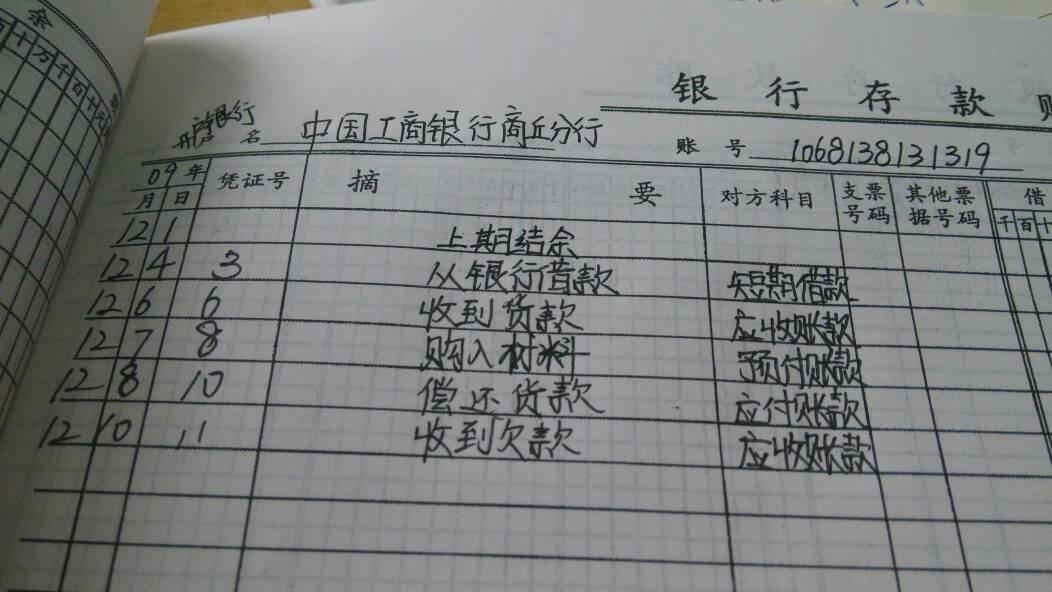 余
万 十 万 千 百 十 元
银 行 存 款
开户银行
名 中国工商银行商丘分行 账 号 1068138131319
09 年 凭证号 摘 要 对方科目 支票号码 其他票据号码 借
月 日 千 百 十
12 1 上期结余
12 4 3 从银行借款 短期借款
12 6 6 收到货款 应收账款
12 7 8 购入材料 预付账款
12 8 10 偿还货款 应付账款
12 10 11 收到欠款 应收账款